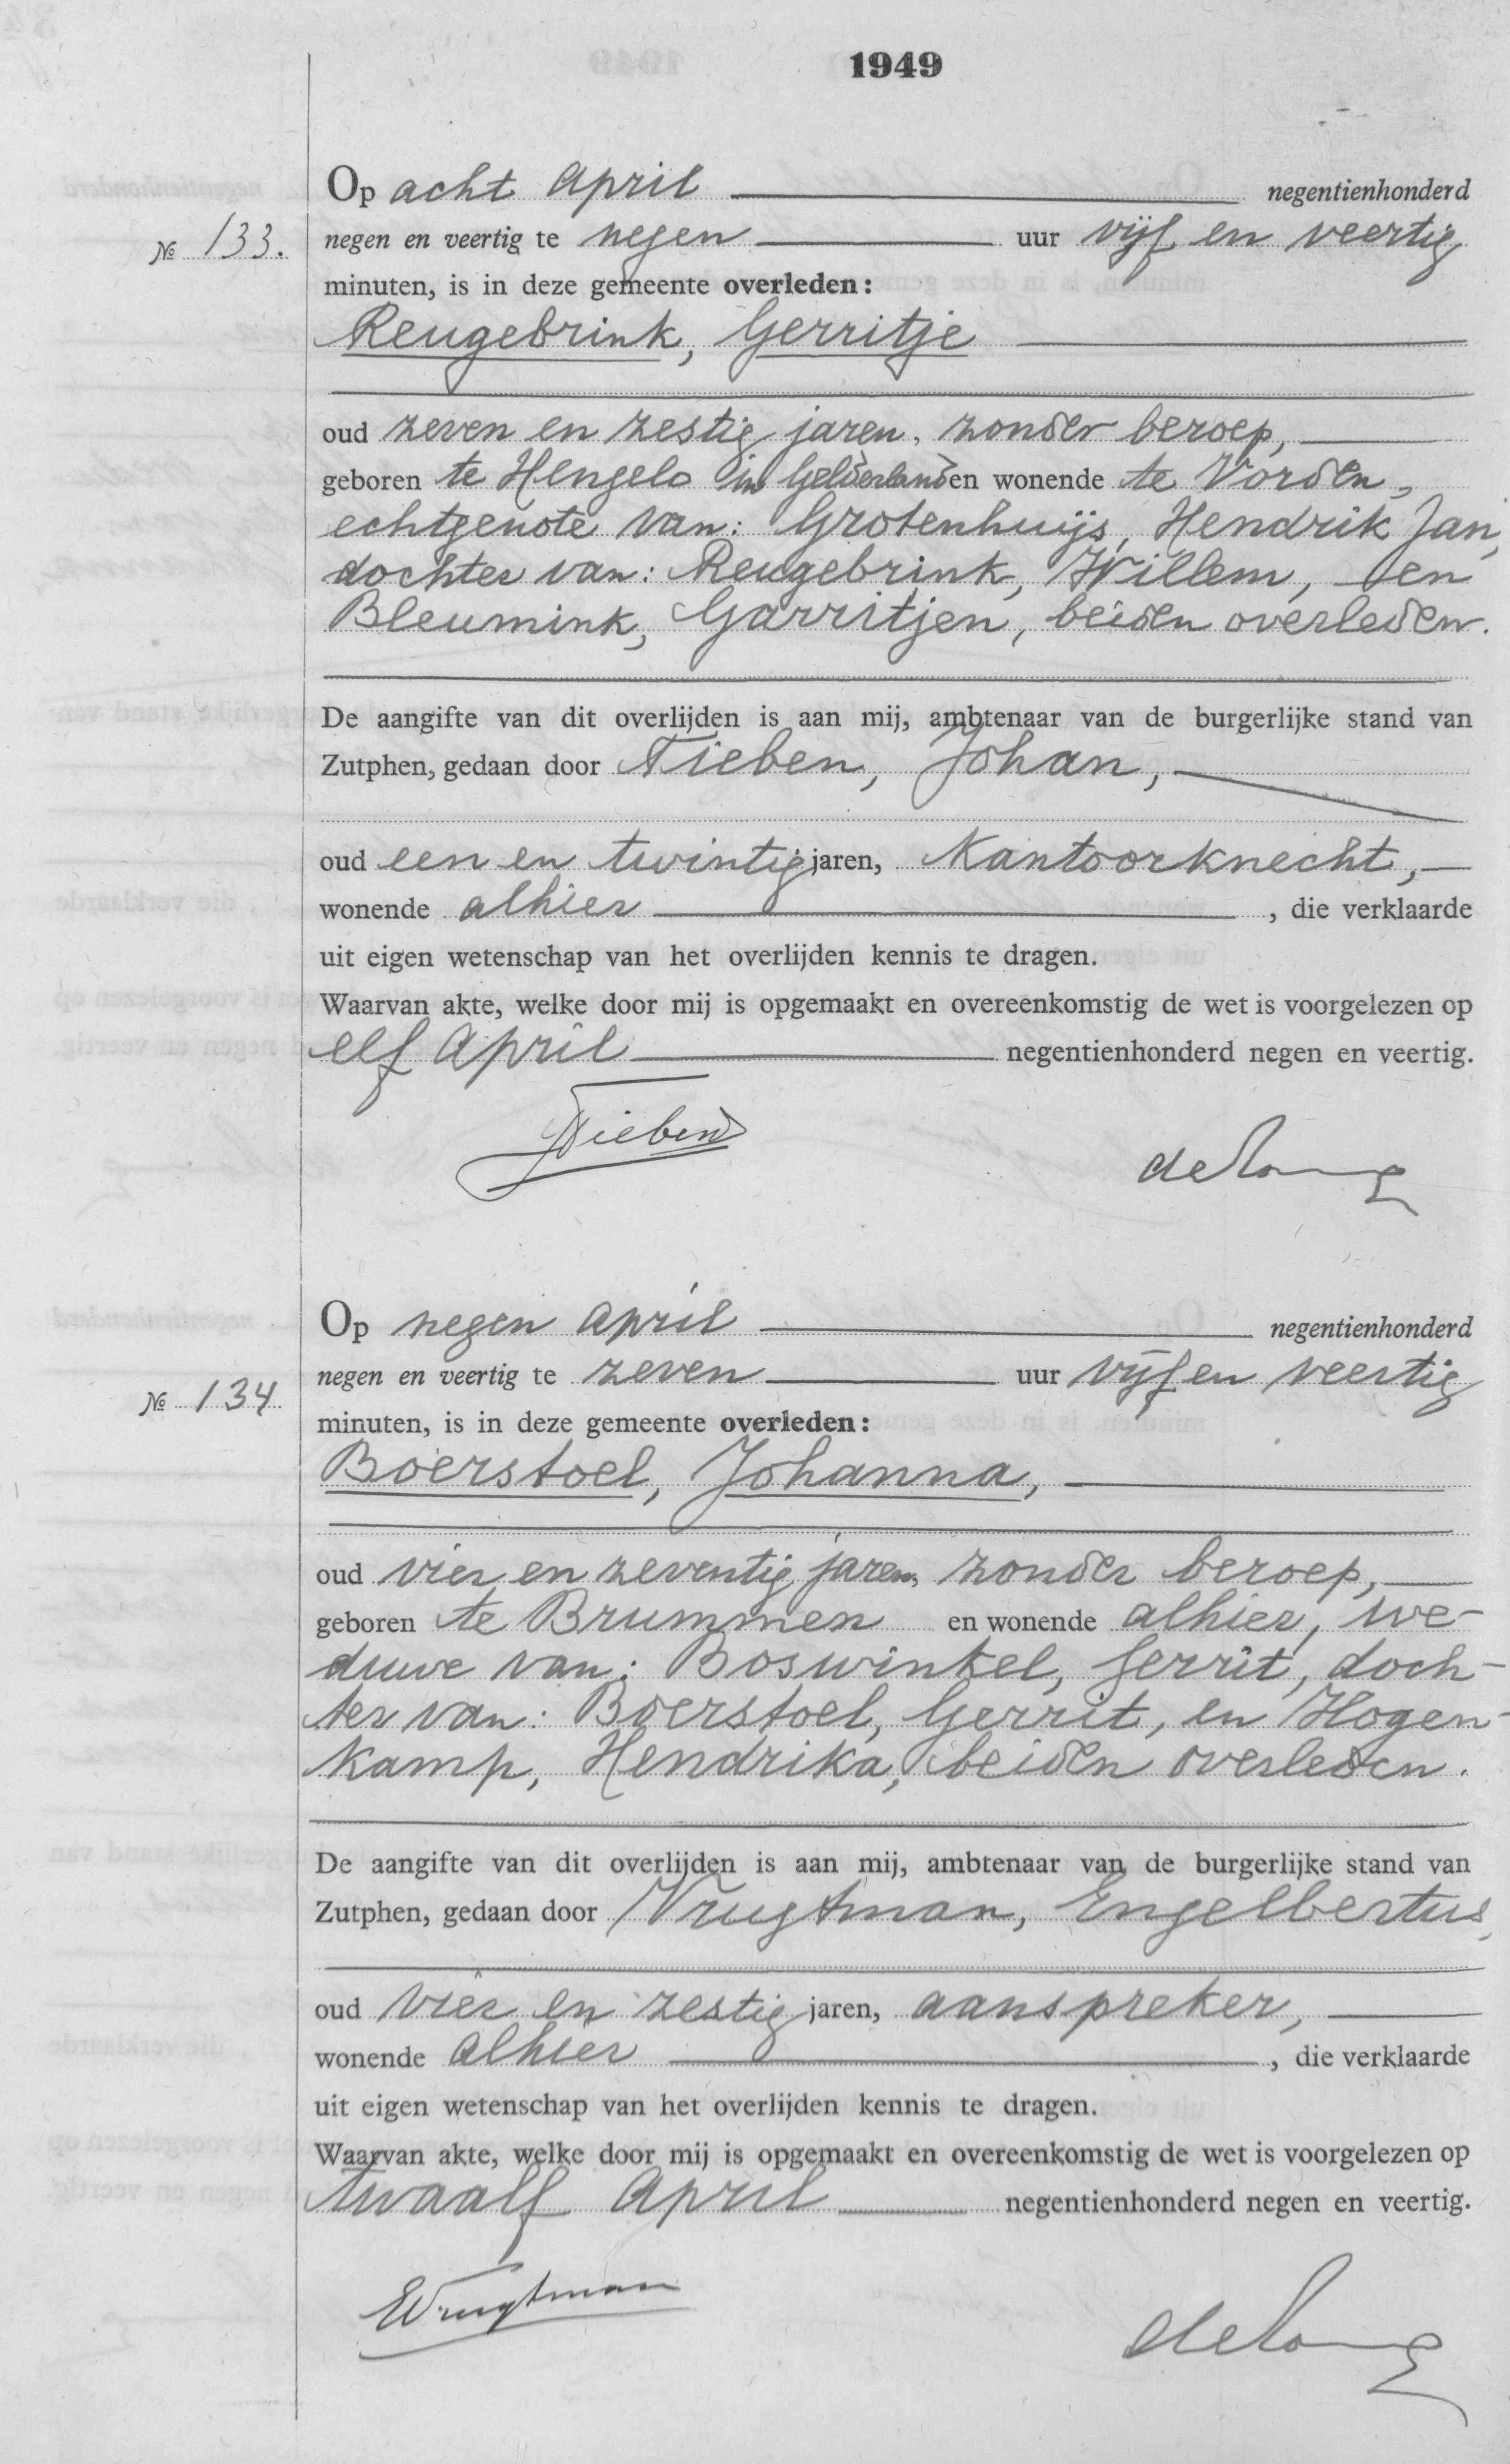 1949
Op acht april negentienhonderd
№ 133. negen en veertig te negen uur vijf en veertig
minuten, is in deze gemeente overleden:
Reugebrink, Gerritje
oud zeven en zestig jaren, zonder beroep,
geboren te Hengelo in Gelderland en wonende te Vorden,
echtgenote van: Grotenhuijs, Hendrik Jan,
dochter van: Reugebrink, Willem, en
Bleumink, Garritjen, beiden overleden.
De aangifte van dit overlijden is aan mij, ambtenaar van de burgerlijke stand van
Zutphen, gedaan door Tieben, Johan,
oud een en twintig jaren, kantoorknecht,
wonende alhier, die verklaarde
uit eigen wetenschap van het overlijden kennis te dragen.
Waarvan akte, welke door mij is opgemaakt en overeenkomstig de wet is voorgelezen op
elf april negentienhonderd negen en veertig.
JTieben
Op negen april negentienhonderd
№ 134 negen en veertig te zeven uur vijf en veertig
minuten, is in deze gemeente overleden:
Boerstoel, Johanna,
oud vier en zeventig jaren, zonder beroep,
geboren te Brummen en wonende alhier, we-
duwe van: Boswinkel, Gerrit, doch-
ter van: Boerstoel, Gerrit, en Hogen-
kamp, Hendrika, beiden overleden.
De aangifte van dit overlijden is aan mij, ambtenaar van de burgerlijke stand van
Zutphen, gedaan door Vrugtman, Engelbertus,
oud vier en zestig jaren, aanspreker,
wonende alhier, die verklaarde
uit eigen wetenschap van het overlijden kennis te dragen.
Waarvan akte, welke door mij is opgemaakt en overeenkomstig de wet is voorgelezen op
twaalf april negentienhonderd negen en veertig.
EVrugtman